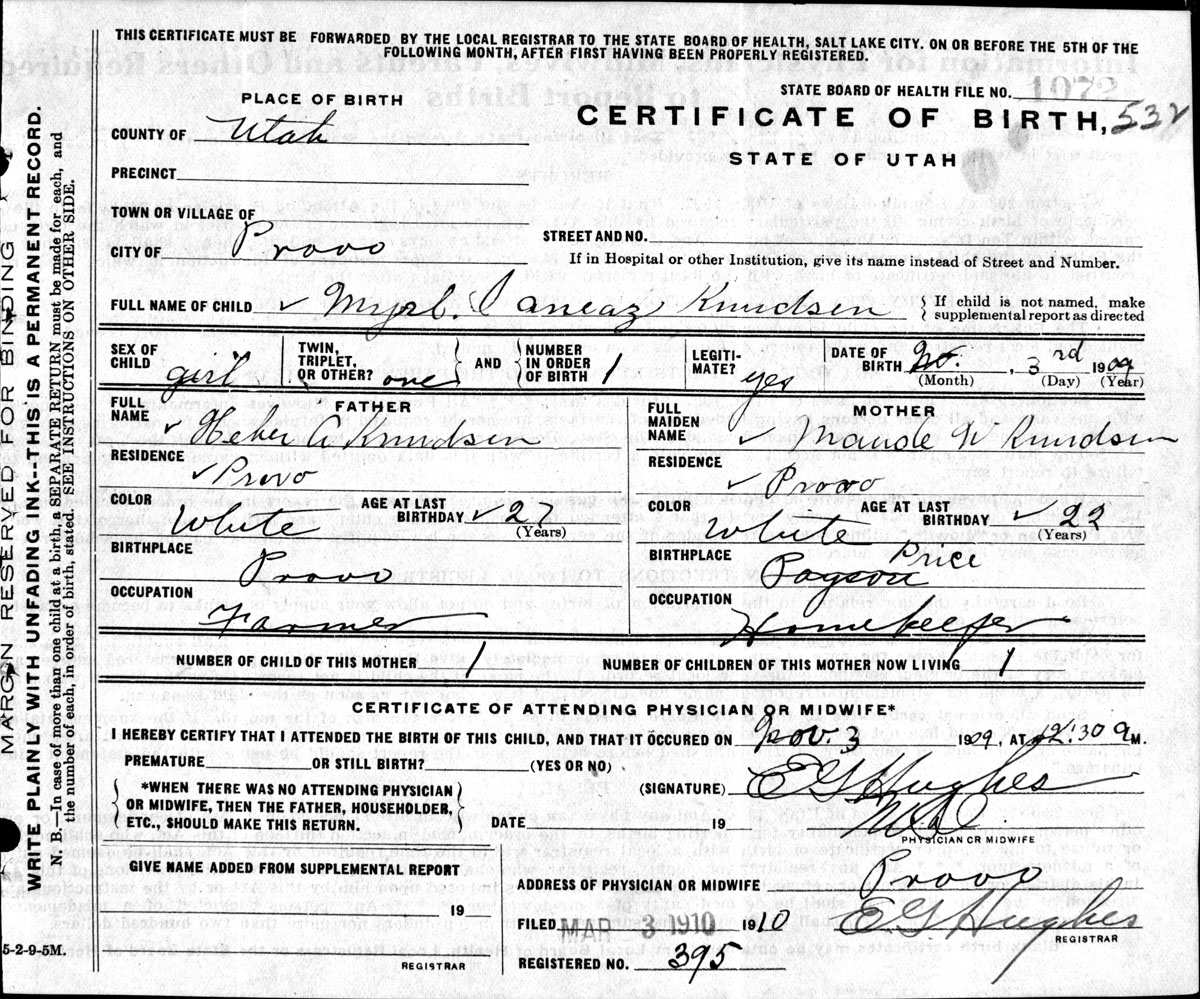 THIS CERTIFICATE MUST BE FORWARDED BY THE LOCAL REGISTRAR TO THE STATE BOARD OF HEALTH, SALT LAKE CITY. ON OR BEFORE THE 5TH OF THE
FOLLOWING MONTH, AFTER FIRST HAVING BEEN PROPERLY REGISTERED.
STATE BOARD OF HEALTH FILE NO. 1072
PLACE OF BIRTH
CERTIFICATE OF BIRTH, 532
COUNTY OF Utah
STATE OF UTAH
PRECINCT
TOWN OR VILLAGE OF
CITY OF Provo
STREET AND NO.
If in Hospital or other Institution, give its name instead of Street and Number.
FULL NAME OF CHILD ✓ Myrl. Knudsen
{ If child is not named, make
supplemental report as directed
SEX OF CHILD girl
TWIN, TRIPLET, OR OTHER? one } AND { NUMBER IN ORDER OF BIRTH 1
LEGITI-MATE? yes
DATE OF BIRTH No. , 3rd 1909
(Month) (Day) (Year)
FATHER
FULL NAME ✓ Heber A Knudsen
RESIDENCE
✓ Provo
COLOR White AGE AT LAST BIRTHDAY ✓ 27
(Years)
BIRTHPLACE
Provo
OCCUPATION
Farmer
MOTHER
FULL MAIDEN NAME ✓ Maude W Knudsen
RESIDENCE
✓ Provo
COLOR White AGE AT LAST BIRTHDAY ✓ 22
(Years)
BIRTHPLACE Price
Payson
OCCUPATION
Homekeeper
NUMBER OF CHILD OF THIS MOTHER 1 NUMBER OF CHILDREN OF THIS MOTHER NOW LIVING 1
CERTIFICATE OF ATTENDING PHYSICIAN OR MIDWIFE*
I HEREBY CERTIFY THAT I ATTENDED THE BIRTH OF THIS CHILD, AND THAT IT OCCURED ON Nov. 3 1909, AT 12:30 a M.
PREMATURE OR STILL BIRTH? (YES OR NO)
(SIGNATURE) E G Hughes
{ *WHEN THERE WAS NO ATTENDING PHYSICIAN
OR MIDWIFE, THEN THE FATHER, HOUSEHOLDER,
ETC., SHOULD MAKE THIS RETURN. }
DATE 19
M D
PHYSICIAN OR MIDWIFE
GIVE NAME ADDED FROM SUPPLEMENTAL REPORT
19
REGISTRAR
ADDRESS OF PHYSICIAN OR MIDWIFE Provo
FILED MAR 3 1910 1910 E G Hughes
REGISTRAR
REGISTERED NO. 395
5-2-9-5M.
MARGIN RESERVED FOR BINDING
WRITE PLAINLY WITH UNFADING INK--THIS IS A PERMANENT RECORD.
N. B.—In case of more than one child at a birth, SEPARATE RETURN must be made for each, and
the number of each, in order of birth, stated. SEE INSTRUCTIONS ON OTHER SIDE.